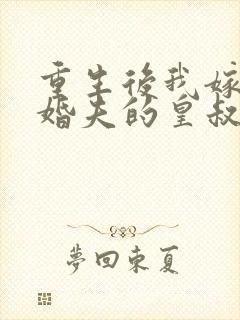 重生後我嫁
婚夫的皇叔
夢回東夏